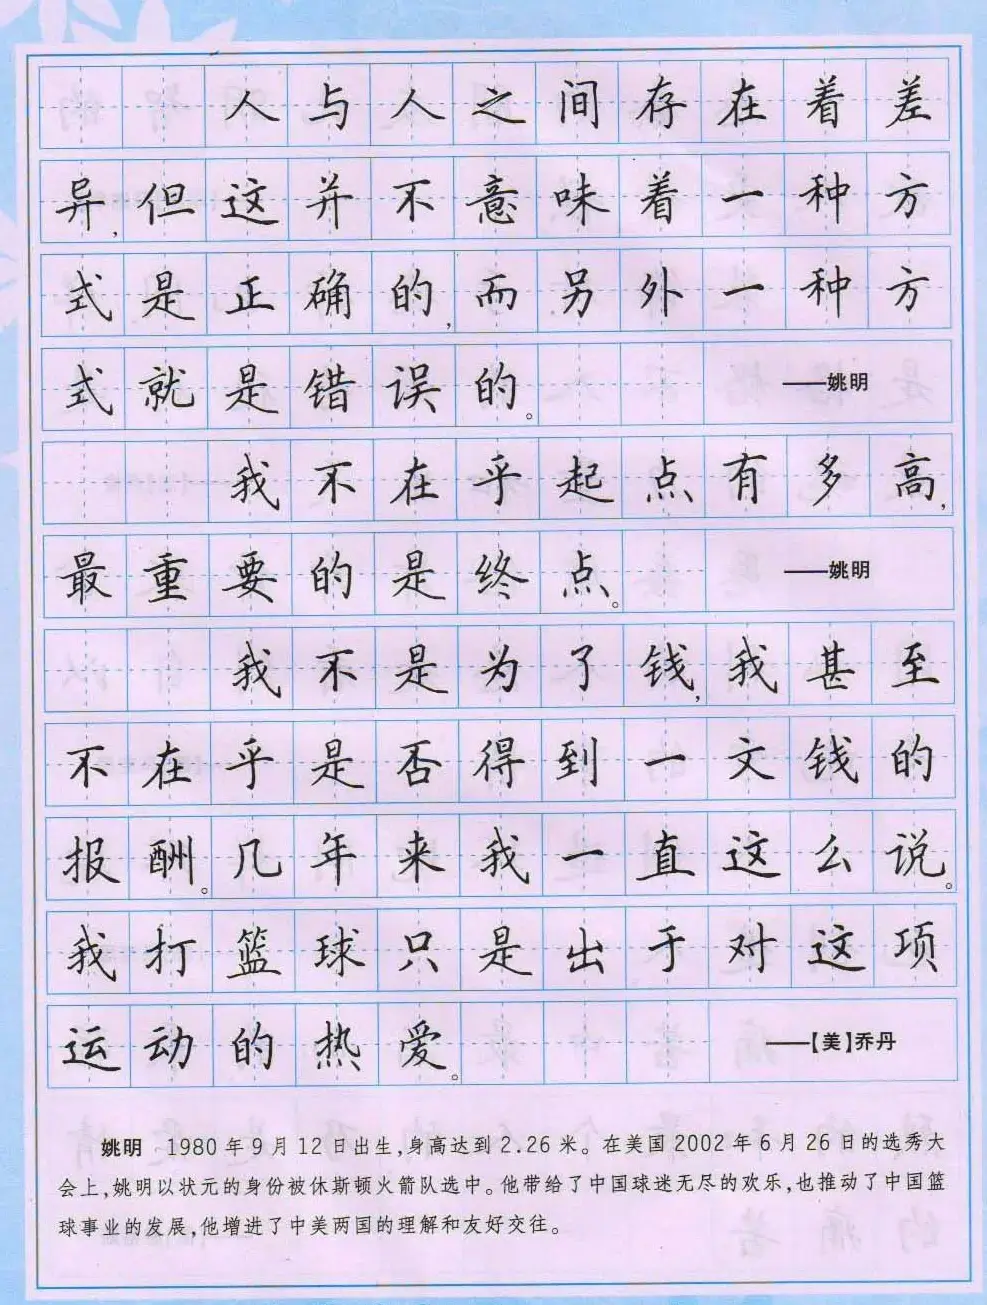 人与人之间存在着差
异,但这并不意味着一种方
式是正确的,而另外一种方
式就是错误的。 ——姚明
我不在乎起点有多高,
最重要的是终点。 ——姚明
我不是为了钱,我甚至
不在乎是否得到一文钱的
报酬。几年来我一直这么说。
我打篮球只是出于对这项
运动的热爱。 ——【美】乔丹
姚明 1980年9月12日出生,身高达到2.26米。在美国2002年6月26日的选秀大
会上,姚明以状元的身份被休斯顿火箭队选中。他带给了中国球迷无尽的欢乐,也推动了中国篮
球事业的发展,他增进了中美两国的理解和友好交往。